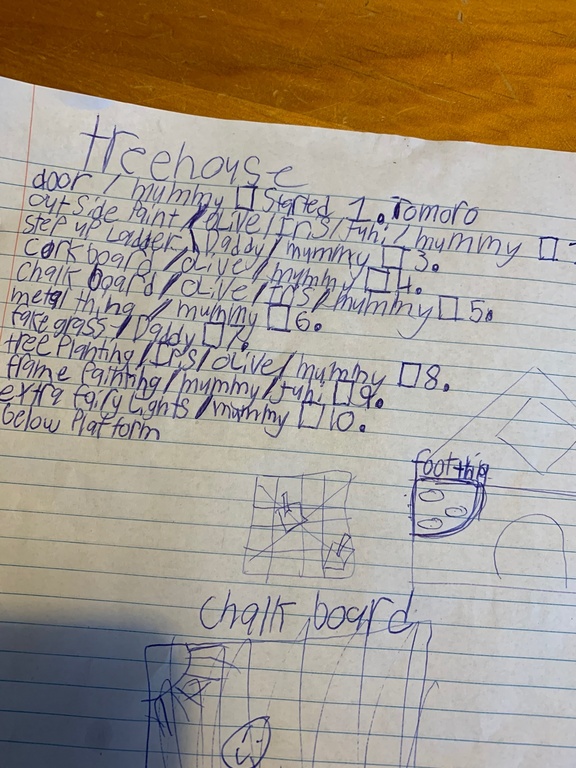 treehouse
door / mummy □ Started 1. Tomoro
outside Paint / olive / Iris / juhi / mummy □
Step up Ladder \ Daddy / mummy □ 3.
corkboard / olive / mummy □ 4.
chalk board / olive / Iris / mummy □ 5.
metal thing / mummy □ 6.
fake grass / Daddy □ 7.
tree Planting / IRIS / olive / mummy □ 8.
flame Painting / mummy / juhi □ 9.
extra fairy Lights / mummy □ 10.
below Platform
foot thip
chalk board